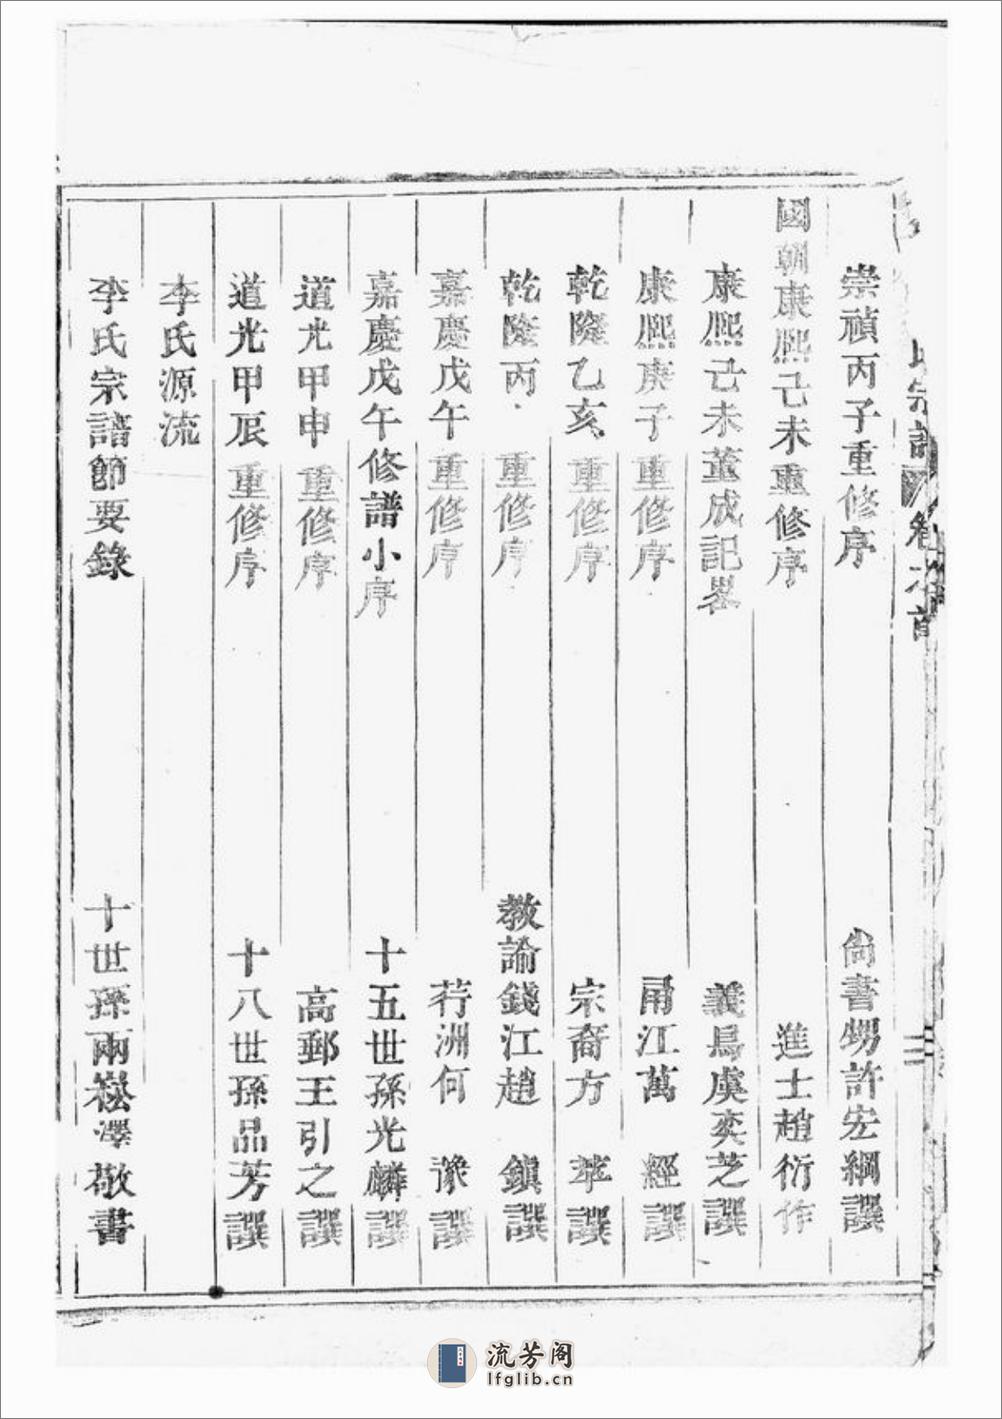 宗譜 卷之首
二
崇禎丙子重修序 尙書甥許宏綱譔
國朝康熙己未重修序 進士趙衍作
康熙己未董成記畧 義烏虞奕芝譔
康熙庚子重修序 甬江萬 經譔
乾隆乙亥重修序 宗裔方 苹譔
乾隆丙 重修序 教諭錢江趙 鎭譔
嘉慶戊午重修序 荇洲何 豫譔
嘉慶戊午修譜小序 十五世孫光麟譔
道光甲申重修序 高郵王引之譔
道光甲辰重修序 十八世孫品芳譔
李氏源流
李氏宗譜節要錄 十世孫兩崧澤敬書
流芳阁
lfglib.cn